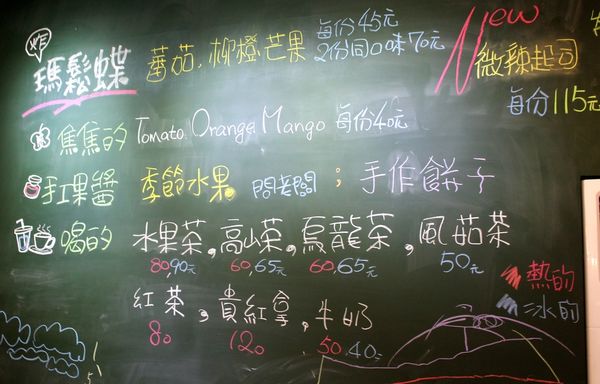 炸 瑪鬆蝶 蕃茄.柳橙.芒果 每份45元
2份同口味70元
New
微辣起司
每份115元
焦焦的 Tomato.Orange.Mango 每份40元
手工果醬 季節水果 問老闆 ; 手作餅子
喝的 水果茶,高山茶,烏龍茶,風茹茶
80,90元 60,65元 60,65元 50元
熱的
冰的
紅茶,貴紅拿,牛奶
80 120 50,40元